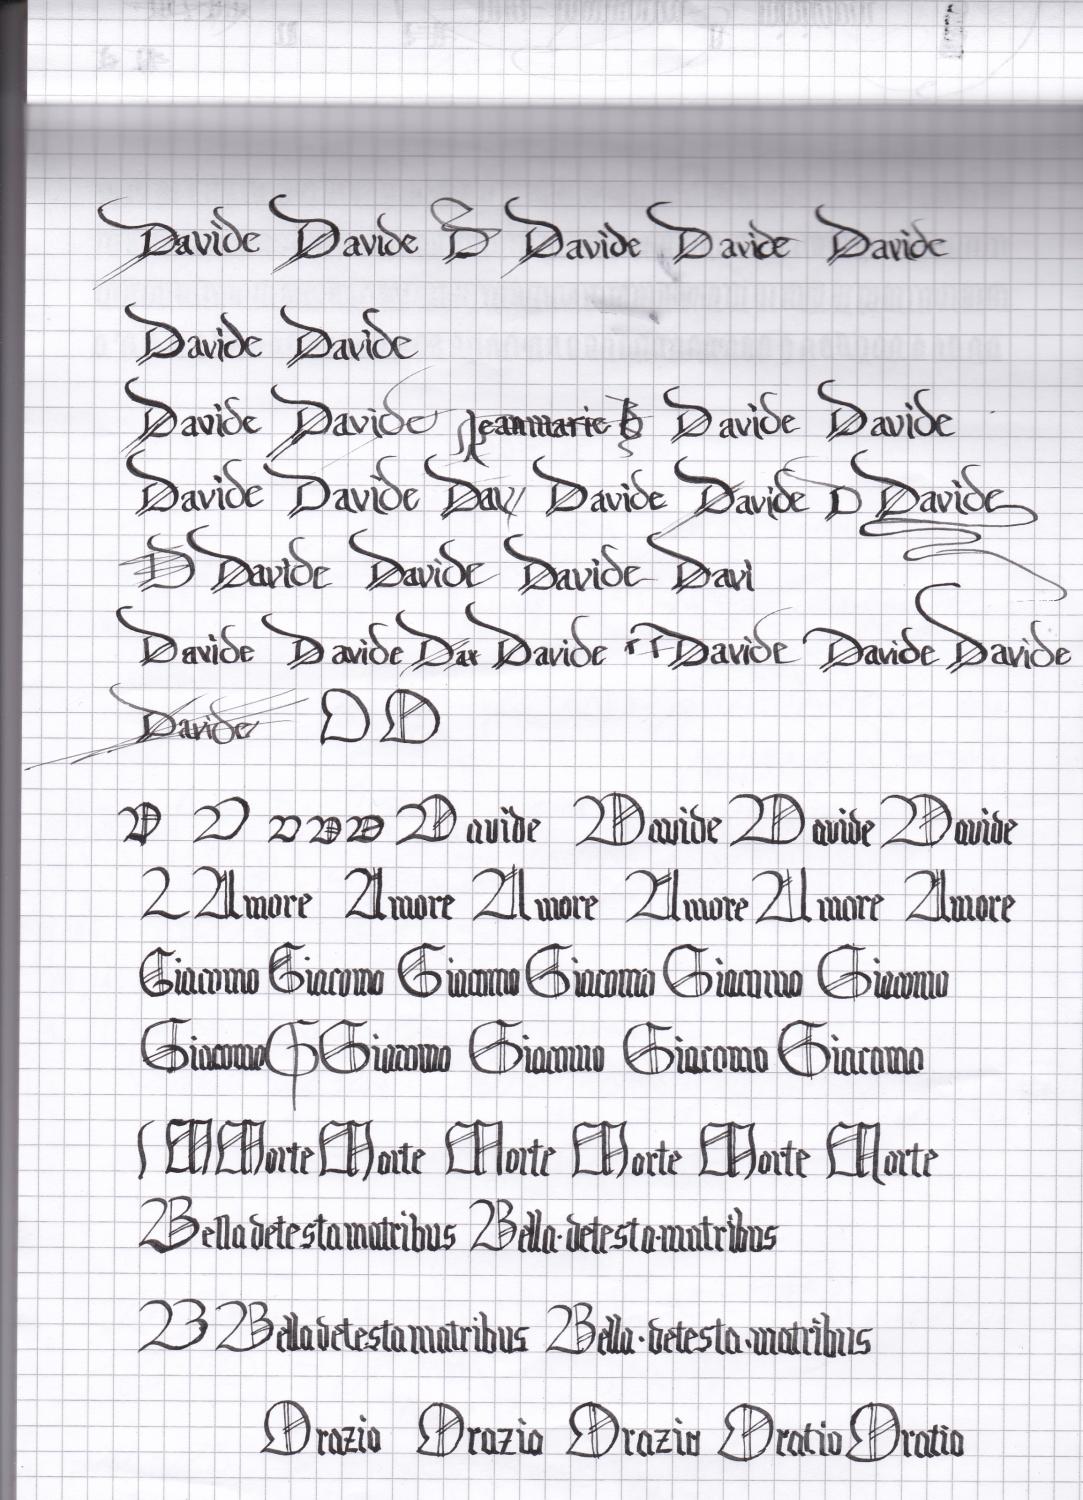 Davide Davide D Davide Davide Davide
Davide Davide
Davide Davide Jeanmarie B Davide Davide
Davide Davide Dav Davide Davide D Davide
D Davide Davide Davide Davi
Davide Davide Dav Davide Davide Davide Davide
Davide D D
Davide Davide Davide Davide
Amore Amore Amore Amore Amore Amore
Giacomo Giacomo Giacomo Giacomo Giacomo Giacomo
Giacomo G Giacomo Giacomo Giacomo Giacomo
M Morte Morte Morte Morte Morte Morte
Bella detesta matribus Bella·detesta·matribus
B Bella detesta matribus Bella·detesta·matribus
Orazio Orazio Orazio Oratio Oratio